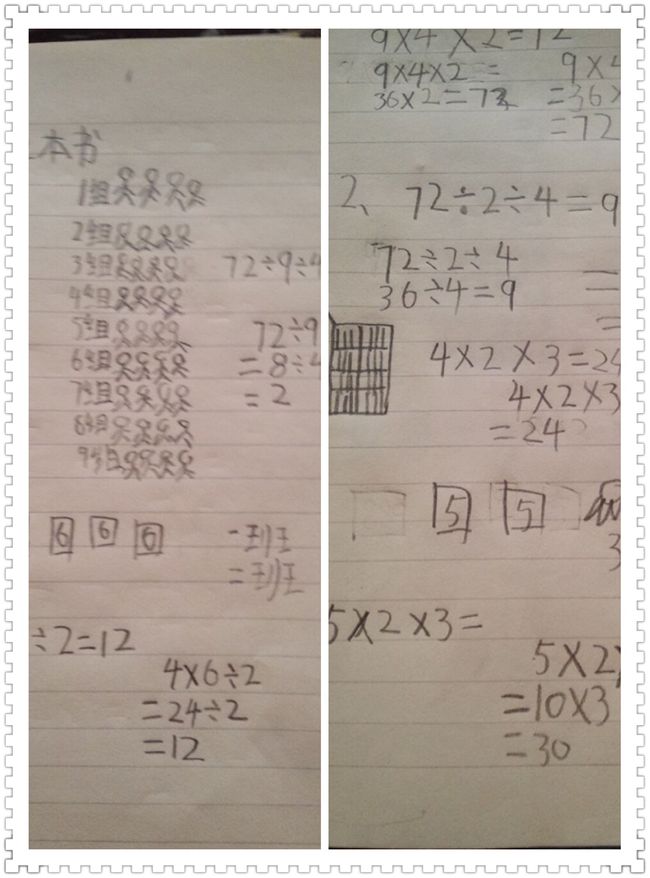 本书
1组
2组
3组
4组
5组
6组
7组
8组
9组
72÷9÷4
72÷9
=8÷4
=2
6 6 6
一班
二班
÷2=12
4×6÷2
=24÷2
=12
9×4×2=12
9×4×2=
36×2=72
9×4
=36×
=72
2、72÷2÷4=9
72÷2÷4
36÷4=9
=
=
4×2×3=24
4×2×3
=24
5 5
3
5×2×3=
5×2×
=10×3
=30